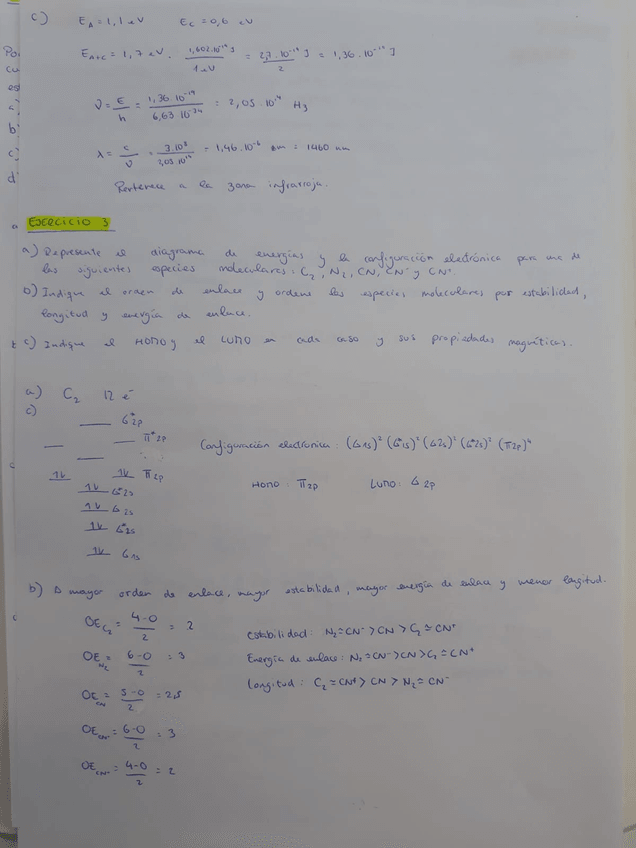 c) E_A = 1,1 eV E_C = 0,6 eV
E_A+C = 1,7 eV · 1,602·10⁻¹⁹ J / 1 eV = 2,7·10⁻¹⁹ J / 2 = 1,36·10⁻¹⁹ J
ν = E/h = 1,36·10⁻¹⁹ / 6,63·10⁻³⁴ = 2,05·10¹⁴ Hz
λ = c/ν = 3·10⁸ / 2,05·10¹⁴ = 1,46·10⁻⁶ m = 1460 nm
Pertenece a la zona infrarroja.
EJERCICIO 3
a) Represente el diagrama de energías y la configuración electrónica para una de
las siguientes especies moleculares: C₂, N₂, CN, CN⁻ y CN⁺
b) Indique el orden de enlace y ordene las especies moleculares por estabilidad,
longitud y energía de enlace.
c) Indique el HOMO y el LUMO en cada caso y sus propiedades magnéticas.
a) C₂ 12 e⁻
c)
σ*2p
π*2p
Configuración electrónica: (σ1s)² (σ*1s)² (σ2s)² (σ*2s)² (π2p)⁴
1↓ 1↓ π2p
HOMO: π2p LUMO: σ2p
1↓ σ*2s
1↓ σ2s
1↓ σ*1s
1↓ σ1s
b) A mayor orden de enlace, mayor estabilidad, mayor energía de enlace y menor longitud.
OE_C₂ = 4-0 / 2 = 2
Estabilidad: N₂ = CN⁻ > CN > C₂ = CN⁺
OE_N₂ = 6-0 / 2 = 3
Energía de enlace: N₂ = CN⁻ > CN > C₂ = CN⁺
Longitud: C₂ = CN⁺ > CN > N₂ = CN⁻
OE_CN = 5-0 / 2 = 2,5
OE_CN⁻ = 6-0 / 2 = 3
OE_CN⁺ = 4-0 / 2 = 2